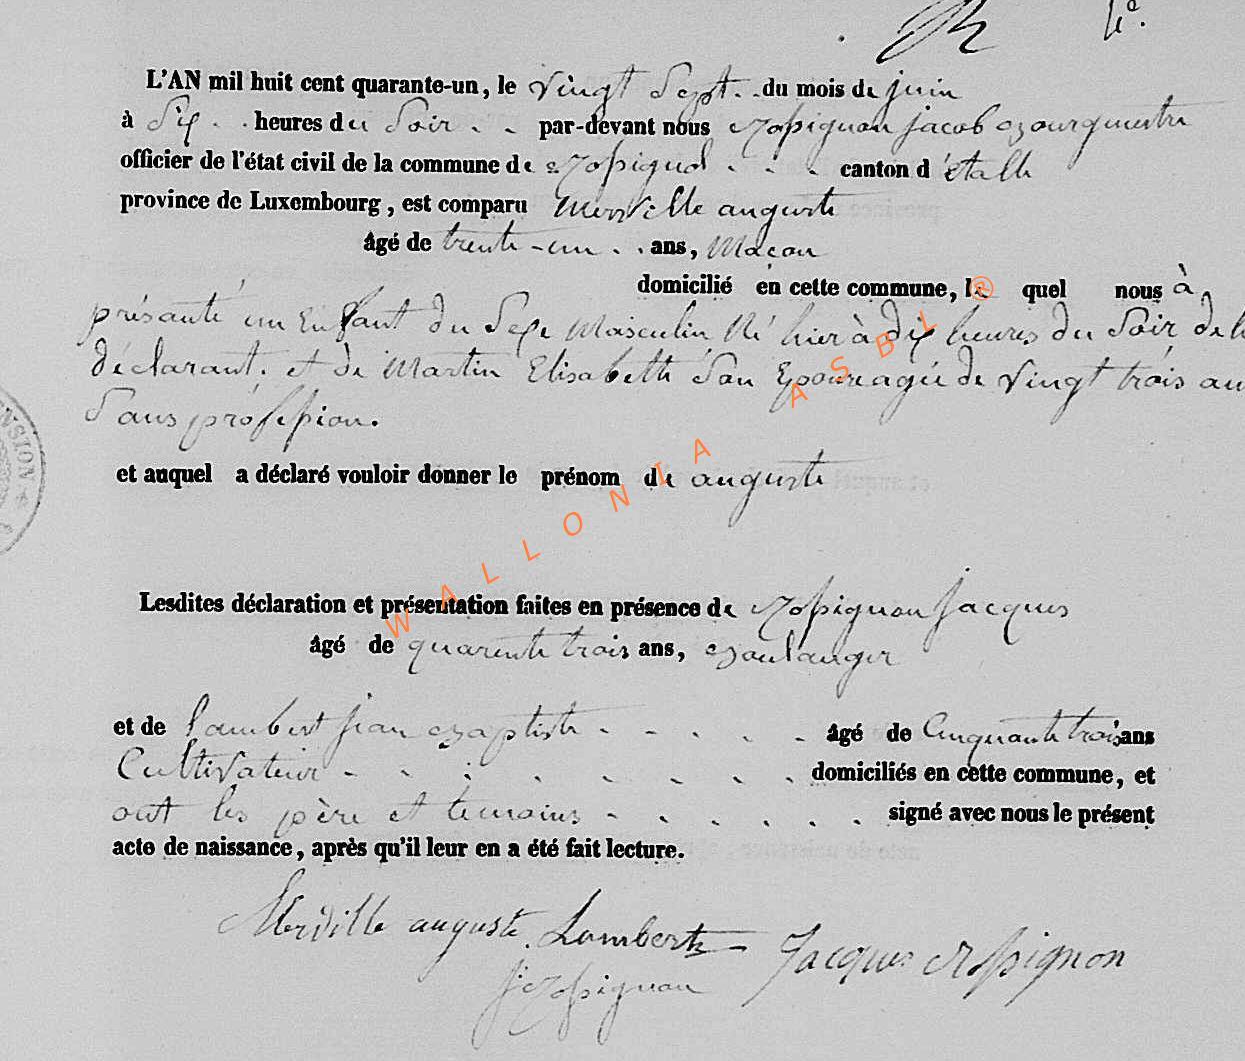 4e.
L'AN mil huit cent quarante-un, le vingt Sept . . du mois de juin
à Six . . heures du Soir . . par-devant nous Rossignon jacob Bourgmestre
officier de l'état civil de la commune de Rossignol . . . canton d'étalle
province de Luxembourg, est comparu Merville auguste
âgé de trente-un . . ans, Macon
domicilié en cette commune, le quel nous à
présanté un Enfant du Sexe Masculin Né hier à dix heures du Soir de lu
déclarant. et de Martin Elisabeth Son Epouse agée de vingt trois an
Sans profession.
ENSION
et auquel a déclaré vouloir donner le prénom de auguste
WALLONIA ASBL ®
Lesdites déclaration et présentation faites en présence de Rossignon Jacques
âgé de quarente trois ans, Boulanger
et de Lambert jean Baptiste - - - - - âgé de Cinquante trois ans
Cultivateur - - - - - - - - domiciliés en cette commune, et
ont les père et temoins - - - - - - signé avec nous le présent
acte de naissance, après qu'il leur en a été fait lecture.
Merville auguste Lambert Jacques Rossignon
J. Rossignon